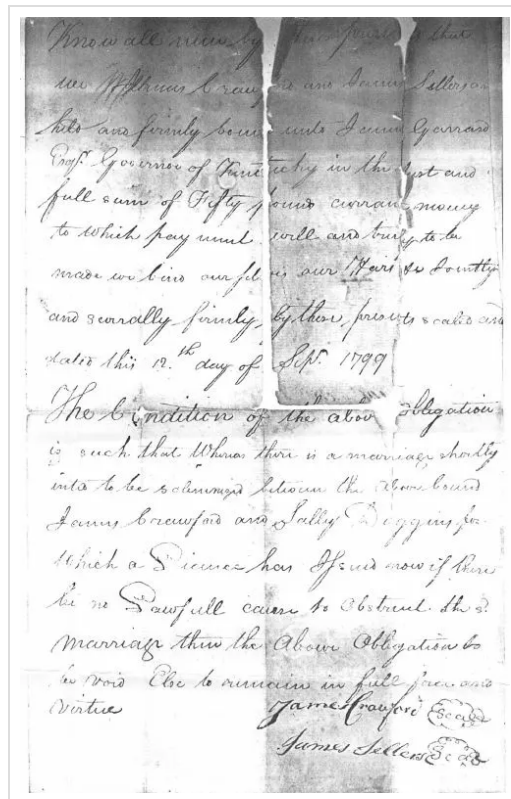 Know all men by these presents that
we James Crawford and James Sellers are
held and firmly bound unto James Garrard
Esqr. Governor of Kentucky in the just and
full sum of Fifty pound current money
to which payment will and truly to be
made we bind our selves our Hairs &c Jointly
and severally firmly by these presents sealed and
dated this 12.th day of Sept. 1799
The Condition of the above obligation
is such that Whereas there is a marriage shortly
inted to be solemnized between the above bound
James Crawford and Sally Diggins for
which a Licence has Issued now if there
be no Lawfull cause to obstruct the sd.
marriage then the Above Obligation to
be void Else to remain in full force and
virtue James Crawford Seal
James Sellers Seal